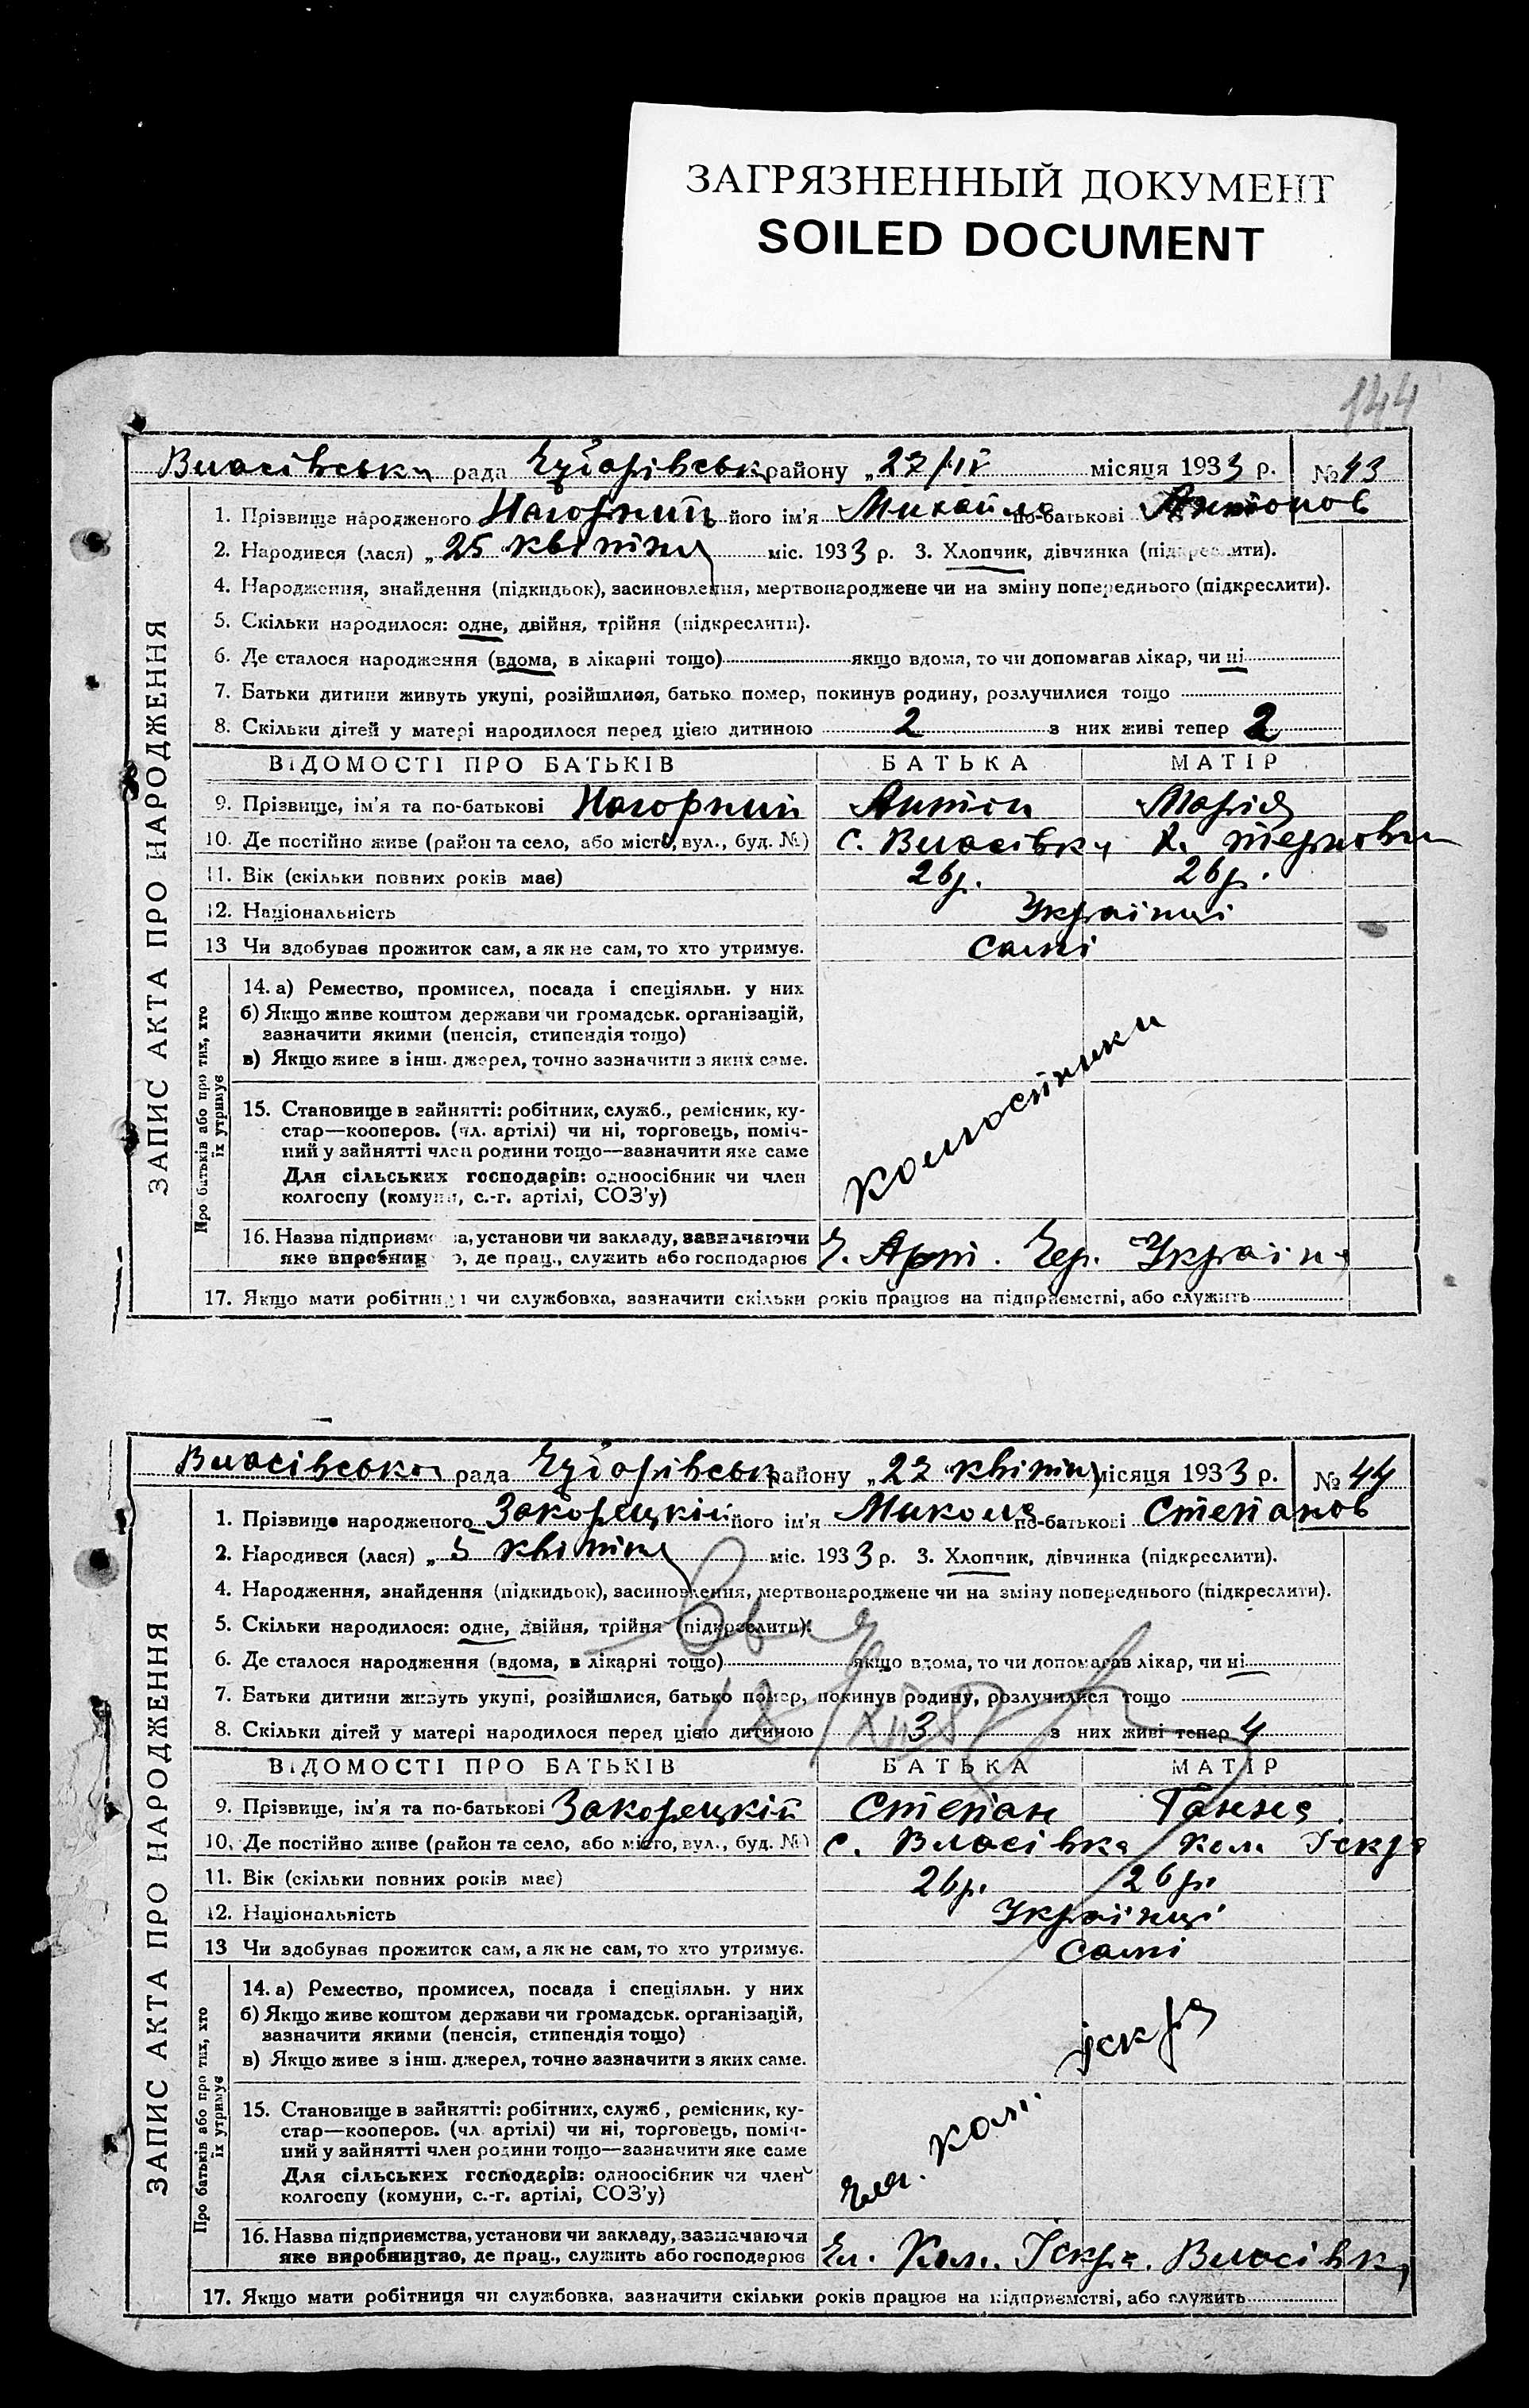 ЗАГРЯЗНЕННЫЙ ДОКУМЕНТ
SOILED DOCUMENT
144
Власівська рада району „27/IV місяця 1933 р. № 43
ЗАПИС АКТА ПРО НАРОДЖЕННЯ
1. Прізвище народженого Нагорний його ім'я Михайло по-батькові Антонов
2. Народився (лася) „25 квітня міс. 1933 р. 3. Хлопчик, дівчинка (підкреслити).
4. Народження, знайдення (підкидьок), засиновлення, мертвонароджене чи на зміну попереднього (підкреслити).
5. Скільки народилося: одне, двійня, трійня (підкреслити).
6. Де сталося народження (вдома, в лікарні тощо) якщо вдома, то чи допомагав лікар, чи ні
7. Батьки дитини живуть укупі, розійшлися, батько помер, покинув родину, розлучилися тощо
8. Скільки дітей у матері народилося перед цією дитиною 2 з них живі тепер 2
ВІДОМОСТІ ПРО БАТЬКІВ БАТЬКА МАТІР
9. Прізвище, ім'я та по-батькові Нагорний Антон Марія
10. Де постійно живе (район та село, або місто, вул., буд. №) с. Власівка х. Тернови
11. Вік (скільки повних років має) 26 р. 26 р.
12. Національність Українці
13 Чи здобуває прожиток сам, а як не сам, то хто утримує. самі
Про батьків або про тих, хто їх утримує
14. а) Ремество, промисел, посада і спеціяльн. у них
б) Якщо живе коштом держави чи громадськ. організацій,
зазначити якими (пенсія, стипендія тощо)
в) Якщо живе з інш. джерел, точно зазначити з яких саме.
15. Становище в зайнятті: робітник, служб., ремісник, ку-
стар—кооперов. (чл. артілі) чи ні, торговець, поміч-
ний у зайнятті член родини тощо—зазначити яке саме
Для сільських господарів: одноосібник чи член
колгоспу (комуни, с.-г. артілі, СОЗ'у)
колгоспники
16. Назва підприємства, установи чи закладу, зазначаючи
яке виробництво, де прац., служить або господарює Арт. Чер. Україна
17. Якщо мати робітниця чи службовка, зазначити скільки років працює на підприємстві, або служить
Власівська рада району „27 квітня місяця 1933 р. № 44
ЗАПИС АКТА ПРО НАРОДЖЕННЯ
1. Прізвище народженого Закорецкій його ім'я Микола по-батькові Степанов
2. Народився (лася) „5 квітня міс. 1933 р. 3. Хлопчик, дівчинка (підкреслити).
4. Народження, знайдення (підкидьок), засиновлення, мертвонароджене чи на зміну попереднього (підкреслити).
5. Скільки народилося: одне, двійня, трійня (підкреслити).
6. Де сталося народження (вдома, в лікарні тощо) якщо вдома, то чи допомагав лікар, чи ні
7. Батьки дитини живуть укупі, розійшлися, батько помер, покинув родину, розлучилися тощо
8. Скільки дітей у матері народилося перед цією дитиною 3 з них живі тепер 4
ВІДОМОСТІ ПРО БАТЬКІВ БАТЬКА МАТІР
9. Прізвище, ім'я та по-батькові Закорецкій Степан Ганна
10. Де постійно живе (район та село, або місто, вул., буд. №) с. Власівка Кол. Іскра
11. Вік (скільки повних років має) 26 р. 26 р.
12. Національність Українці
13 Чи здобуває прожиток сам, а як не сам, то хто утримує. самі
Про батьків або про тих, хто їх утримує
14. а) Ремество, промисел, посада і спеціяльн. у них
б) Якщо живе коштом держави чи громадськ. організацій,
зазначити якими (пенсія, стипендія тощо)
в) Якщо живе з інш. джерел, точно зазначити з яких саме.
15. Становище в зайнятті: робітник, служб., ремісник, ку-
стар—кооперов. (чл. артілі) чи ні, торговець, поміч-
ний у зайнятті член родини тощо—зазначити яке саме
Для сільських господарів: одноосібник чи член
колгоспу (комуни, с.-г. артілі, СОЗ'у)
Чл. Кол. Іскра
16. Назва підприємства, установи чи закладу, зазначаючи
яке виробництво, де прац., служить або господарює Кол. Іскра. Власівка
17. Якщо мати робітниця чи службовка, зазначити скільки років працює на підприємстві, або служить